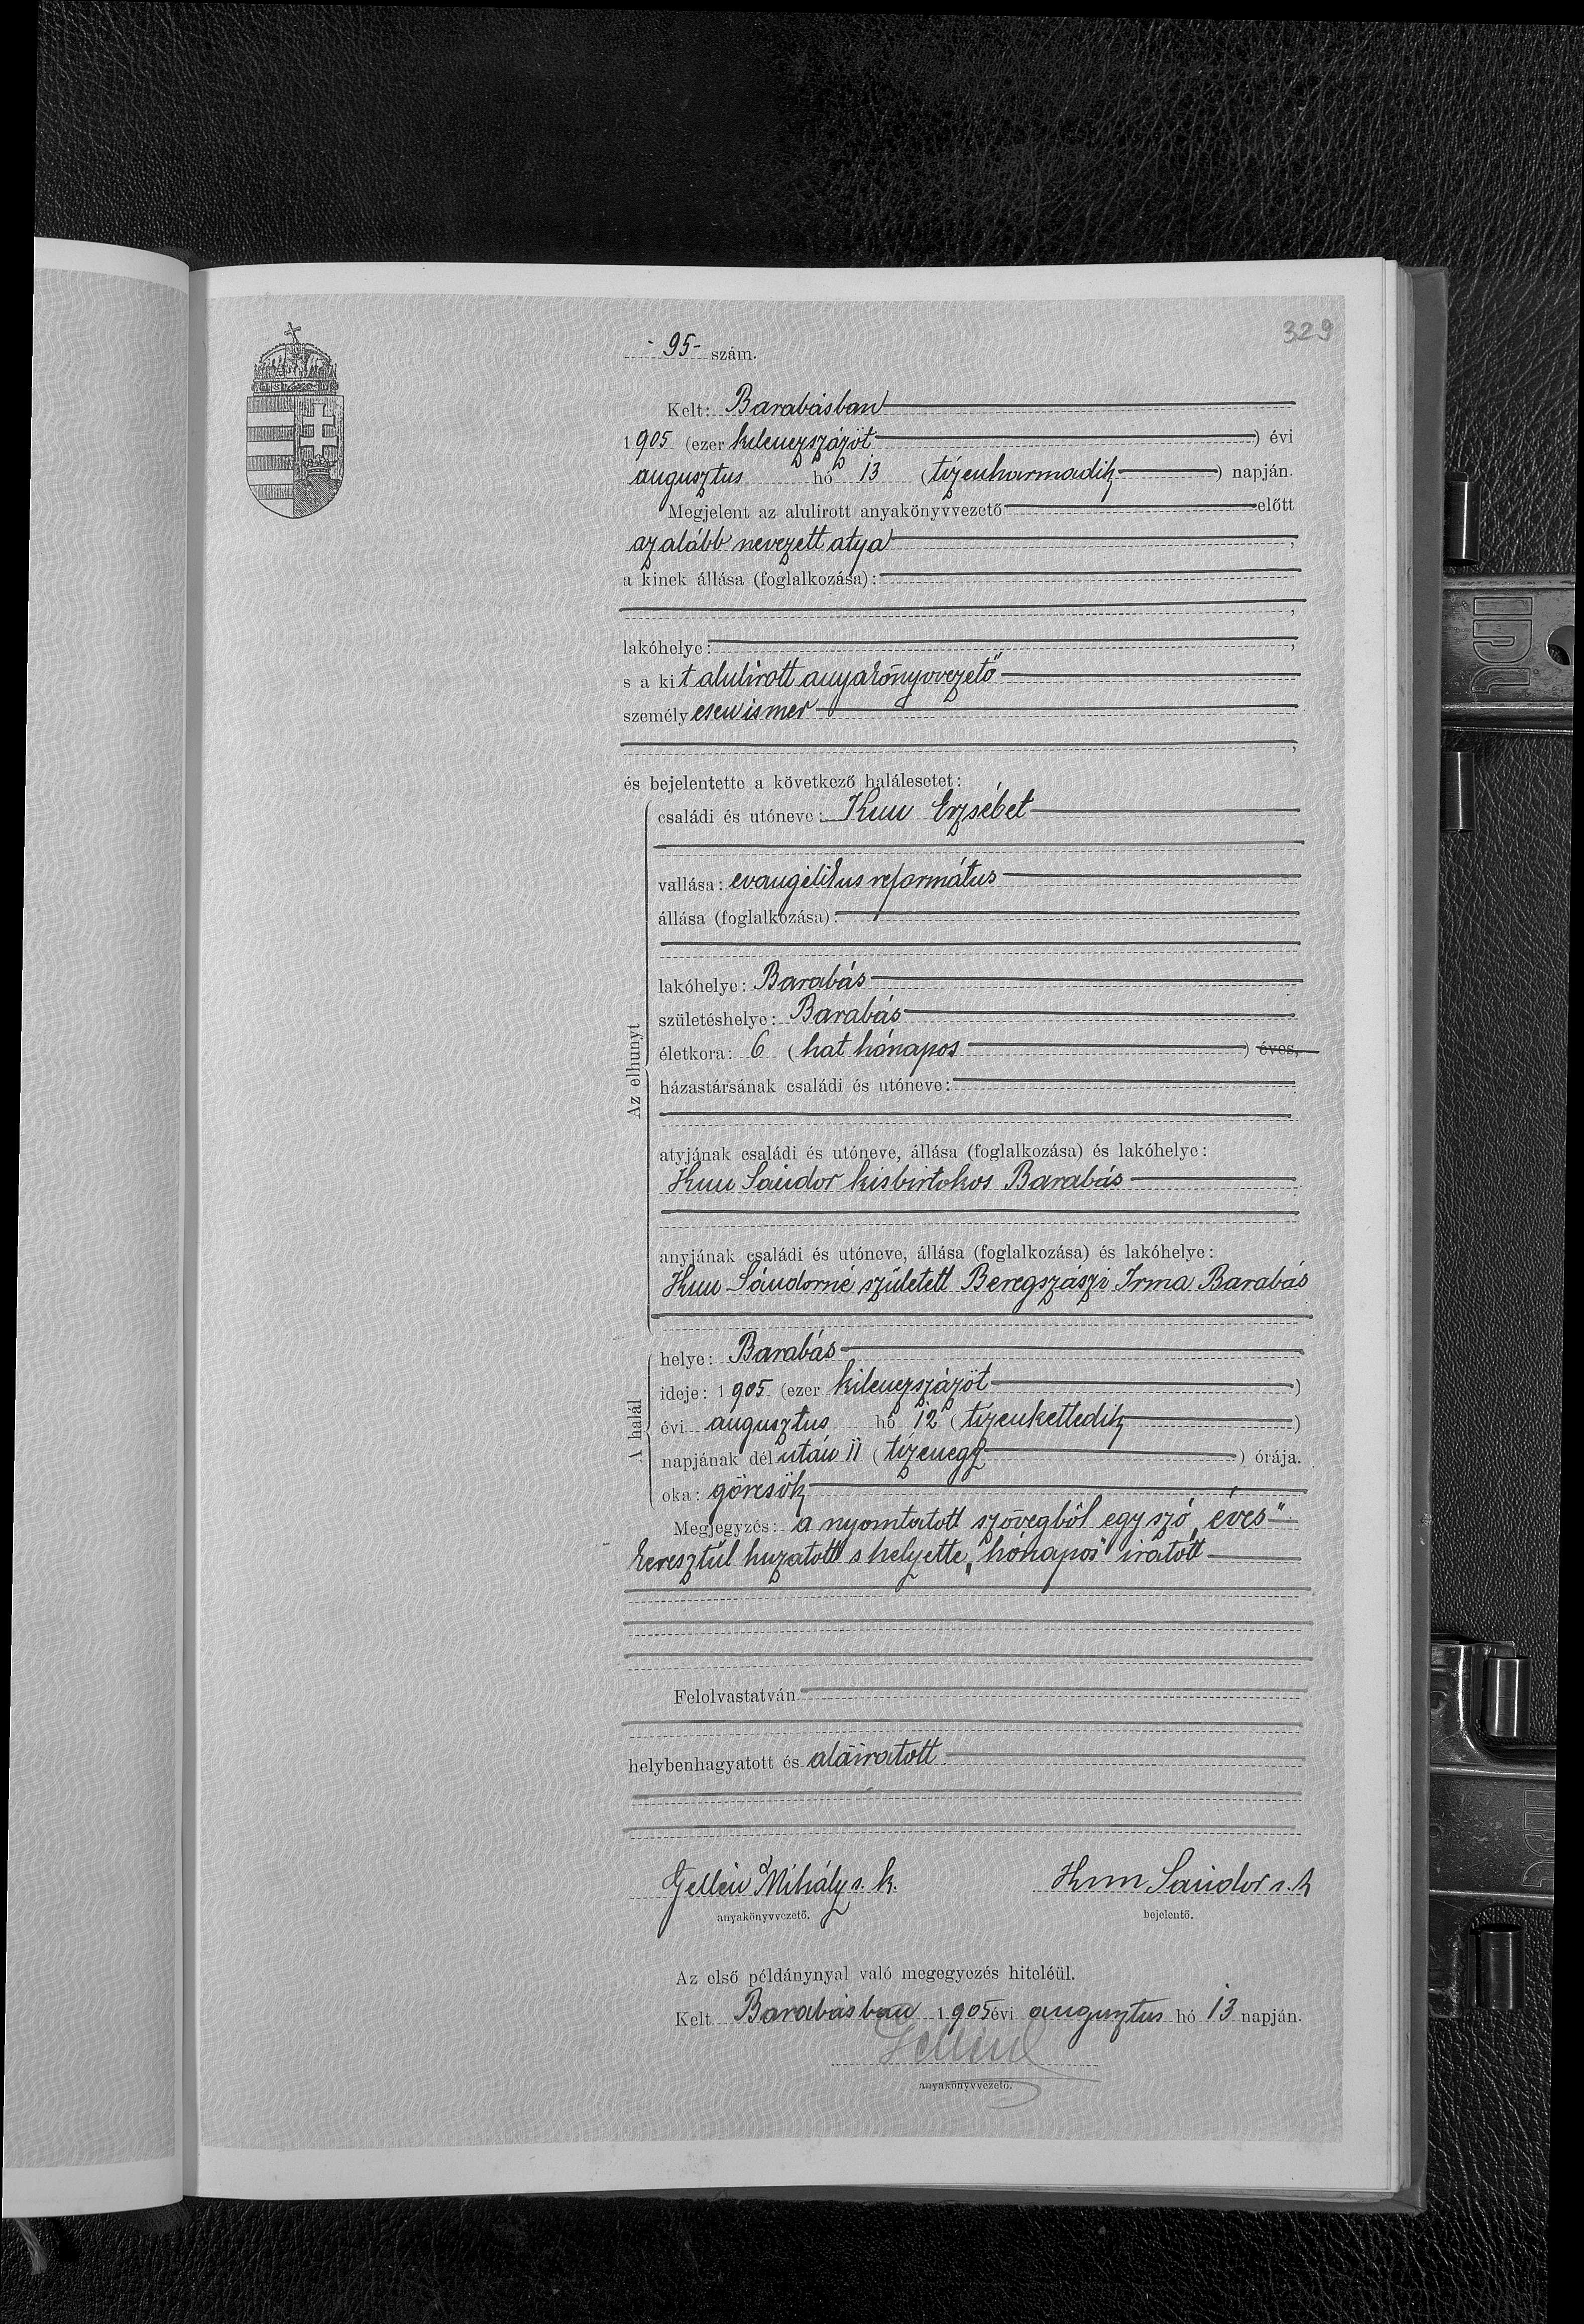 329
- 95 - szám.
Kelt: Barabásban
1905 (ezer kilenczszázöt) évi
augusztus hó 13 (tizenharmadik) napján.
Megjelent az alulirott anyakönyvvezető előtt
az alább nevezett atya,
a kinek állása (foglalkozása):
,
lakóhelye: ,
s a kit alulirott anyakönyvvezető
személyesen ismer
,
és bejelentette a következő halálesetet:
Az elhunyt
családi és utóneve: Kun Erzsébet
vallása: evangélikus református
állása (foglalkozása):
lakóhelye: Barabás
születéshelye: Barabás
életkora: 6 (hat hónapos) éves,
házastársának családi és utóneve:
atyjának családi és utóneve, állása (foglalkozása) és lakóhelye:
Kun Sándor kisbirtokos Barabás
anyjának családi és utóneve, állása (foglalkozása) és lakóhelye:
Kun Sándorné született Beregszászi Irma Barabás
A halál
helye: Barabás
ideje: 1905 (ezer kilenczszázöt)
évi augusztus hó 12 (tizenkettedik)
napjának dél után 11 (tizenegy) órája.
oka: görcsök
Megjegyzés: a nyomtatott szövegből egy szó „éves"
keresztül huzatott s helyette „hónapos" iratott
Felolvastatván
helybenhagyatott és aláiratott
Gellén Mihály s. k. Kun Sándor s. k
anyakönyvvezető. bejelentő.
Az első példánynyal való megegyezés hiteléül.
Kelt Barabásban 1905 évi augusztus hó 13 napján.
anyakönyvvezető.